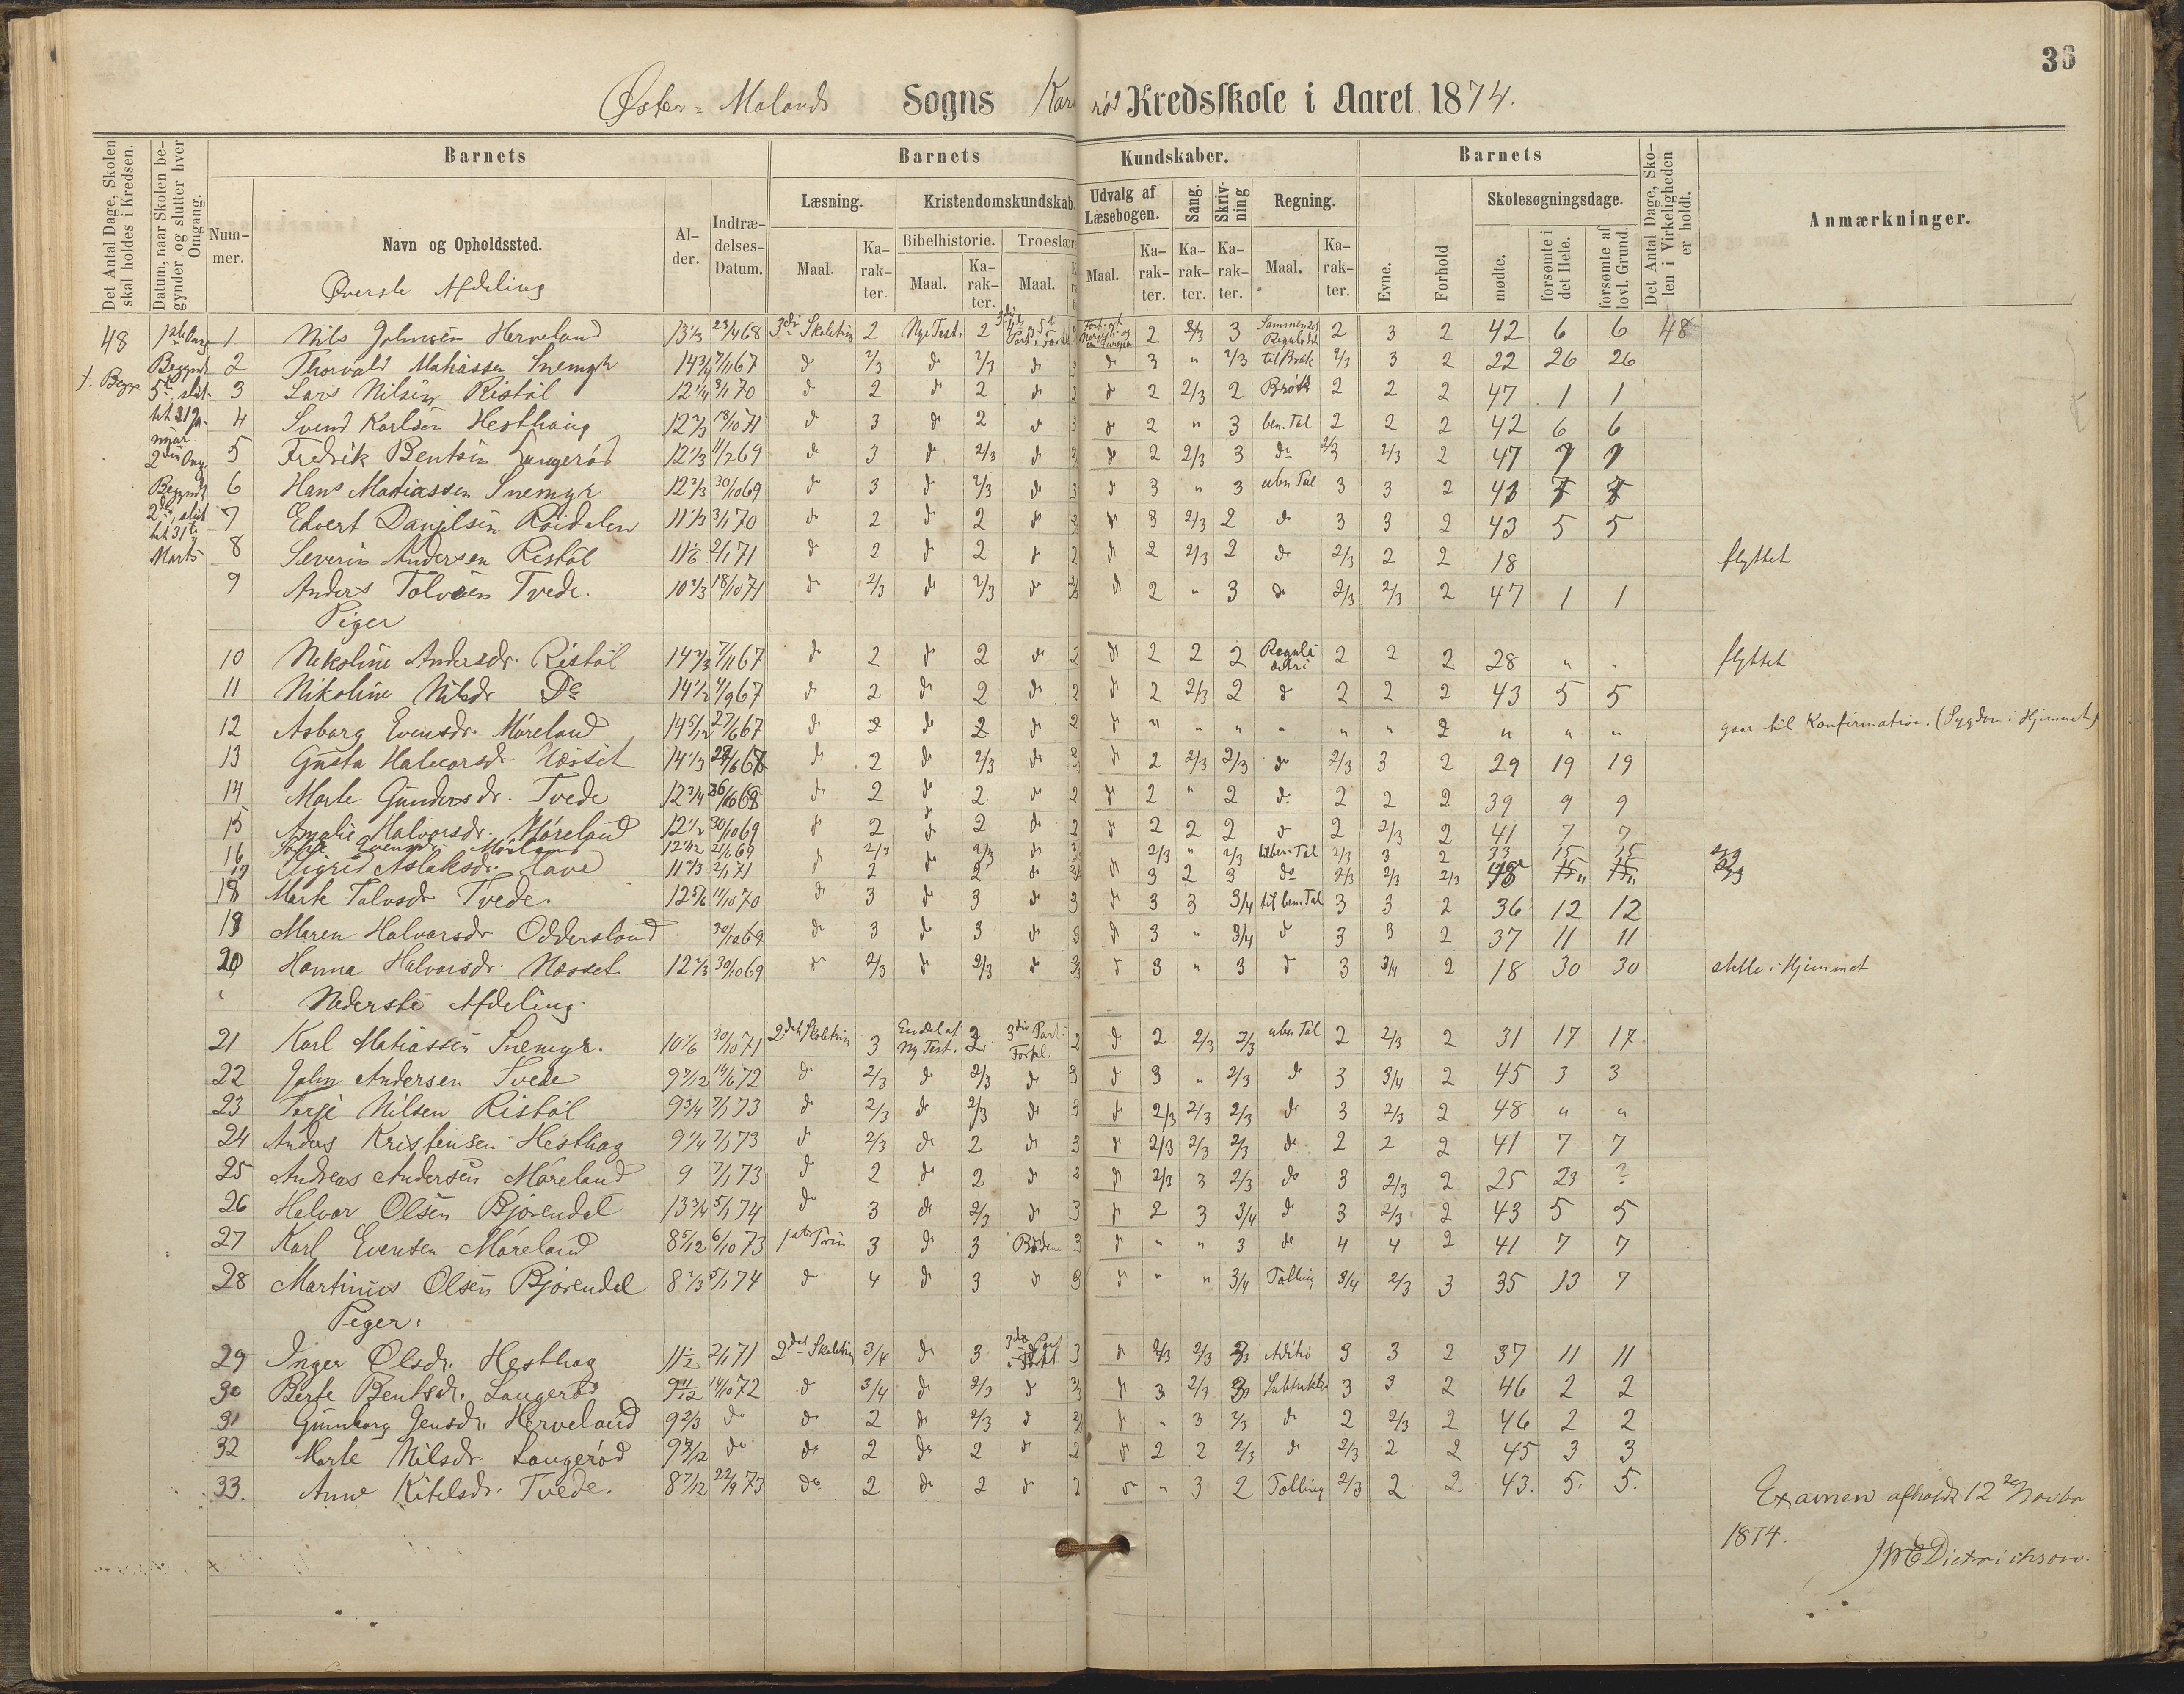 36
Øster-Molands Sogns Kredsskole i Aaret 1874.
Det Antal Dage, Skolen skal holdes i Kredsen.
Datum, naar Skolen begynder og slutter hver Omgang.
Barnets
Nummer.
Navn og Opholdssted.
Alder.
Indtrædelses-Datum.
Barnets Kundskaber.
Læsning.
Maal.
Karakter.
Kristendomskundskab.
Bibelhistorie.
Maal.
Karakter.
Troeslære
Maal.
Udvalg af Læsebogen.
Maal.
Karakter.
Sang.
Karakter.
Skrivning
Karakter.
Regning.
Maal.
Karakter.
Barnets
Evne.
Forhold
Skolesøgningsdage.
mødte.
forsømte i det Hele.
forsømte af lovl. Grund.
Det Antal Dage, Skolen i Virkeligheden er holdt.
Anmærkninger.
Øverste Afdeling
48 1 Nils Johnsen Herveland 13 1/3 23/4 68 3die Skoletrin 2 Nye Test. 2 2 2/3 3 2 3 2 42 6 6 48
2 Thorvald Mathiassen Snemyr 14 3/4 7/11 67 do 2/3 do 2/3 do do 3 " 2/3 til Brøk 2/3 3 2 22 26 26
3 Lars Nilsen Ristøl 12 1/4 3/1 70 do 2 do 2 do do 2 2/3 2 Brøk 2 2 2 47 1 1
4 Svend Karlsen Hesthaug 12 2/3 18/10 71 do 3 do 2 do do 2 " 3 ben. Tal 2 2 2 42 6 6
5 Fredrik Bentsen Langerød 12 1/3 11/2 69 do 3 do 2/3 do do 2 2/3 3 do 2/3 2/3 2 47 1 1
6 Hans Mathiassen Snemyr 12 2/3 30/10 69 do 3 do 2/3 do do 3 " 3 uben Tal 3 3 2 43
7 Edvert Danjelsen Røidalen 11 1/3 3/1 70 do 2 do 2 do 3 2/3 2 do 3 3 2 43 5 5
8 Severin Andersen Ristøl 11 1/6 2/1 71 do 2 do 2 do 2 do 2 2/3 2 do 2/3 2 2 18 flyttet
9 Anders Tolvsen Tvede. 10 2/3 18/10 71 do 2/3 do 2/3 do do 2 " 3 do 2/3 2/3 2 47 1 1
Piger
10 Nekoline Andersdr. Ristøl 14 2/3 7/11 67 do 2 do 2 do 2 do 2 2 2 2 2 2 28 " " flyttet
11 Nikoline Nilsdr Do 14 1/2 4/9 67 do 2 do 2 do 2 do 2 2/3 2 do 2 2 2 43 5 5
12 Asborg Evensdr. Møreland 14 5/12 27/6 67 do 2 do 2 do 2 do " " " " " " 2 " " " gaar til Konfirmation. (Sygdom i Hjemmet)
13 Gusta Halvorsdr. Næsset 14 1/3 do 2 do 2/3 do do 2 2/3 2/3 do 2/3 3 2 29 19 19
14 Marte Gundersdr. Tvede 12 3/4 do 2 do 2 do 2 do 2 " 2 do 2 2 2 39 9 9
15 Amalie Halvorsdr. Møreland 12 1/2 30/10 69 do 2 do 2 do 2 do 2 2 2 do 2 2/3 2 41 7 7
16 Evensdr. Møreland 2/3 do 2/3 do 2/3 " 2/3 til ben. Tal 2/3 3 2 33 15 15
17 Sigrid Aslaksdr. Have 11 2/3 2/1 71 do 2 do 2 do 3 2 3 do 2/3 2/3 2/3 48
18 Marte Tolvsdr Tvede. 12 5/6 11/10 70 do 3 do 3 do 3 do 3 3 3/4 til ben. Tal 3 3 2 36 12 12
19 Maren Halvorsdr Oddersland 30/10 69 do 3 do 3 do 3 do 3 " 3/4 do 3 3 2 37 11 11
20 Hanna Halvorsdr. Næsset 12 2/3 30/10 69 do 2/3 do 2/3 do do 3 " 3 do 3 3/4 2 18 30 30 i Hjemmet
Nederste Afdeling
21 Karl Mathiassen Snemyr. 10 1/6 30/10 71 2det Skoletrin 3 En del af Ny Test. 2 3die Part Forkl. 2 do 2 2/3 2/3 uben Tal 2 2/3 2 31 17 17
22 John Andersen Tvede 9 7/12 14/6 72 do 2/3 do 2/3 do 3 do 3 " 2/3 do 3 3/4 2 45 3 3
23 Terje Nilsen Ristøl 9 3/4 7/1 73 do 2/3 do 2/3 do 3 do 2/3 2/3 2/3 do 3 2/3 2 48 " "
24 Anders Kristensen Hesthag 9 1/4 7/1 73 do 2/3 do 2 do 3 do 2/3 2/3 2/3 do 2 2 2 41 7 7
25 Andreas Andersen Møreland 9 7/1 73 do 2 do 2 do 2 do 2/3 3 2/3 do 3 2/3 2 25 23 ?
26 Halvor Olsen Bjørendal 13 3/4 5/1 74 do 3 do 2/3 do 3 do 2 3 3/4 do 3 2/3 2 43 5 5
27 Karl Evensen Møreland 8 5/12 6/10 73 1ste Trin 3 do 3 3 do " " 3 do 4 4 2 41 7 7
28 Martinius Olsen Bjørendal 8 2/3 5/1 74 do 4 do 3 do 3 do " " 3/4 Tælling 3/4 2/3 3 35 13 7
Piger:
29 Inger Olsdr. Hesthag 11 1/2 2/1 71 2det Skoletrin 3/4 do 3 3die Part Forkl 3 do 2/3 2/3 Aditio 3 3 2 37 11 11
30 Berte Bentsdr. Langerød 9 11/12 14/10 72 do 3/4 do 2/3 do do 3 2/3 3 Subtraktio 3 3 2 46 2 2
31 Gunnborg Jensdr. Herveland 9 2/3 do do 2 do 2/3 do do " 3 2/3 do 2 2/3 2 46 2 2
32 Marte Nilsdr. Langerød do do 2 do 2 do 2 do 2 2 2/3 do 2/3 2 2 45 3 3
33. Anne Kitelsdr. Tvede. 8 7/12 22/9 73 do 2 do 2 do 2 do " 3 2 Tælling 2/3 2 2 43. 5. 5.
Examen afholdt 12te Novbr
1874.
JMCDietrichson.